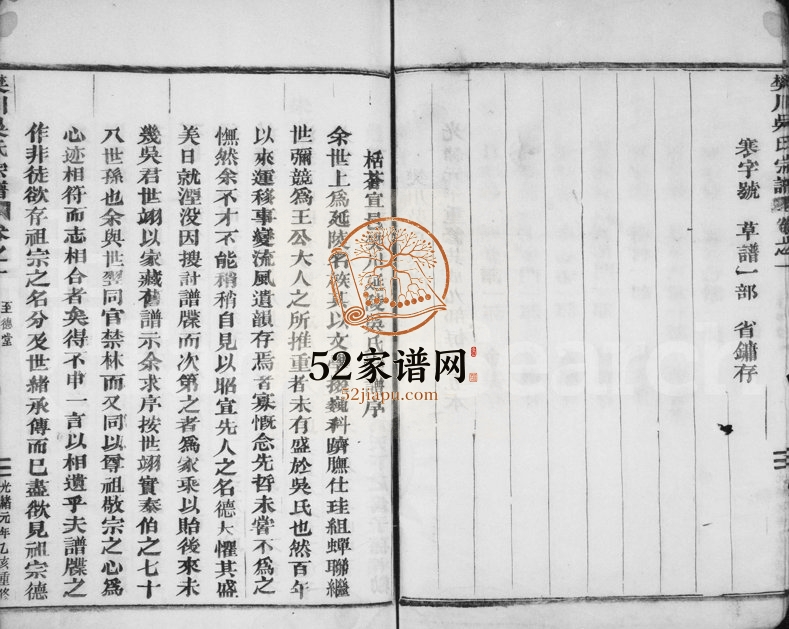 樊川吳氏宗譜 卷之一
寒字號 草譜一部 省鏞存
栝蒼宣邑樊川延陵吳氏 譜序
余世上爲延陵名族其以文 科躋膴仕珪組蟬聯繼
世彌競爲王公大人之所推重者未有盛於吳氏也然百年
以來運移事變流風遺韻存焉者寡慨念先哲未嘗不爲之
憮然余不才不能稍稍自見以昭宣先人之名德大懼其盛
美日就湮没因搜討譜牒而次第之者爲家乘以貽後來未
幾吳君世翊以家藏舊譜示余求序按世翊實泰伯之七十
八世孫也余與世翊同官禁林而又同以尊祖敬宗之心爲
心迹相符而志相合者矣得不申一言以相遺乎夫譜牒之
作非徒欲存祖宗之名分及世緒承傳而已盡欲見祖宗德
樊川吳氏宗譜 卷之一 至德堂 光緒元年乙亥重修
52家谱网
52jiapu.com